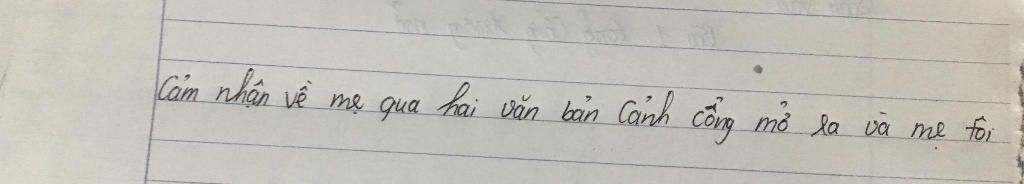 Cảm nhận về mẹ qua hai văn bản Cảnh cổng mở ra và mẹ tôi